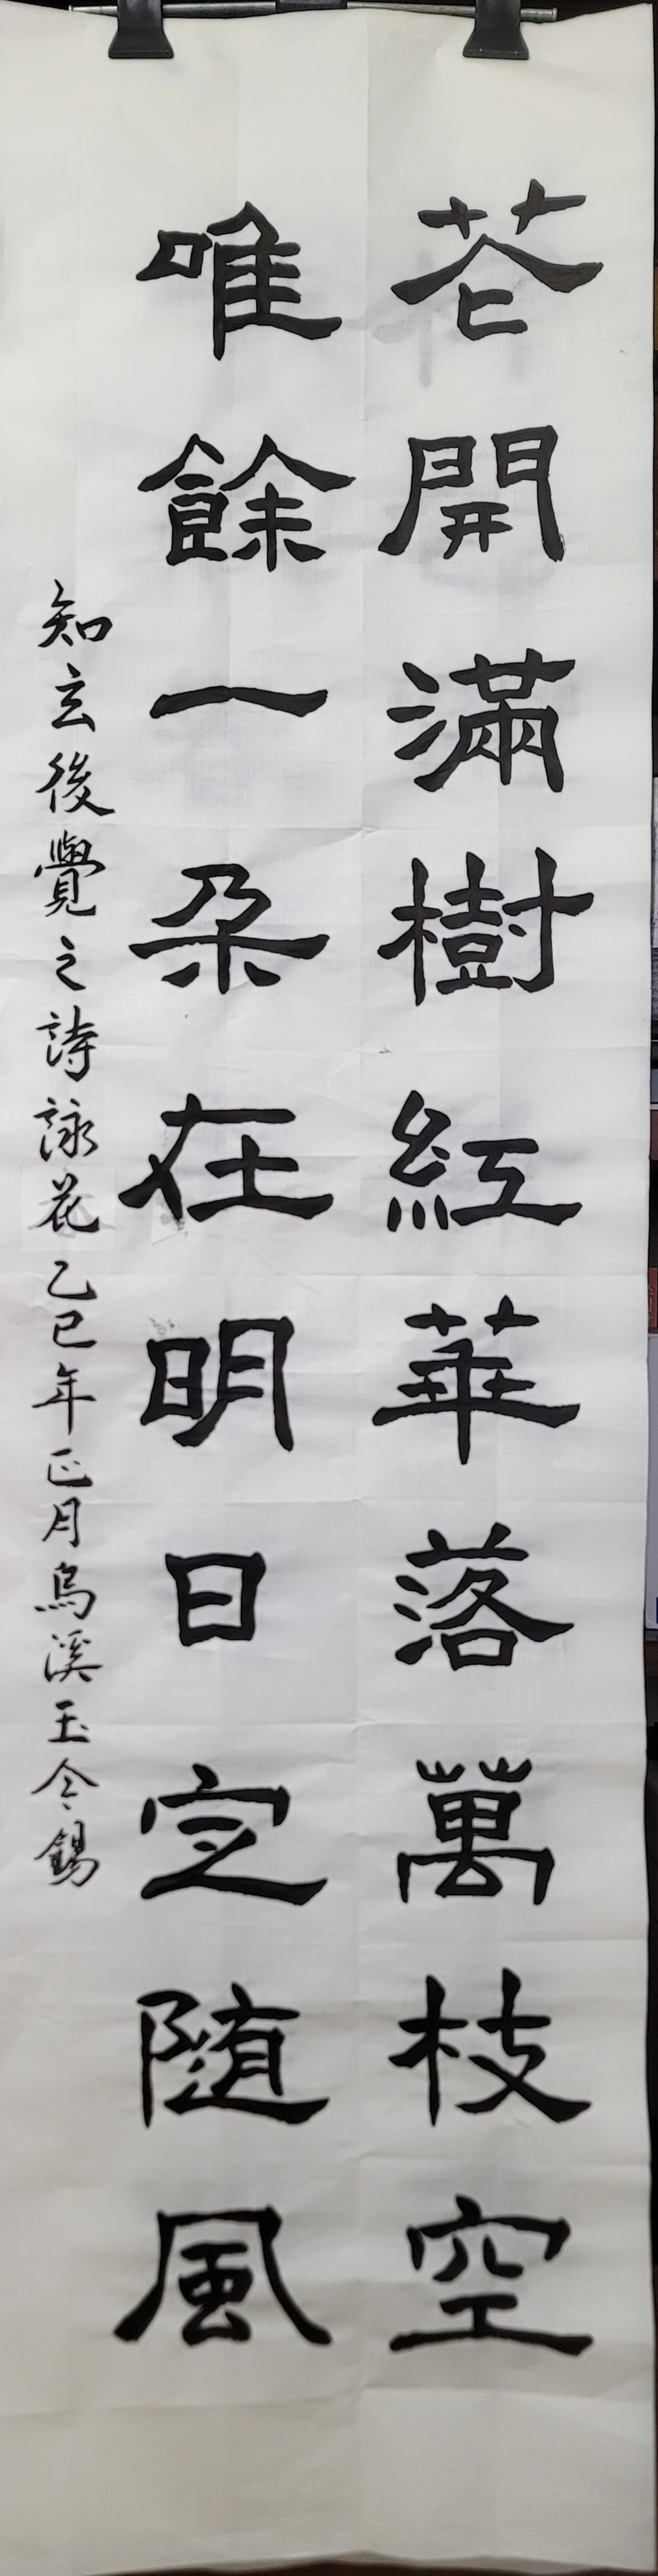 花開滿樹紅華落萬枝空
唯餘一朵在明日定随風
知玄後覺之詩詠花乙巳年正月烏溪玉令錫